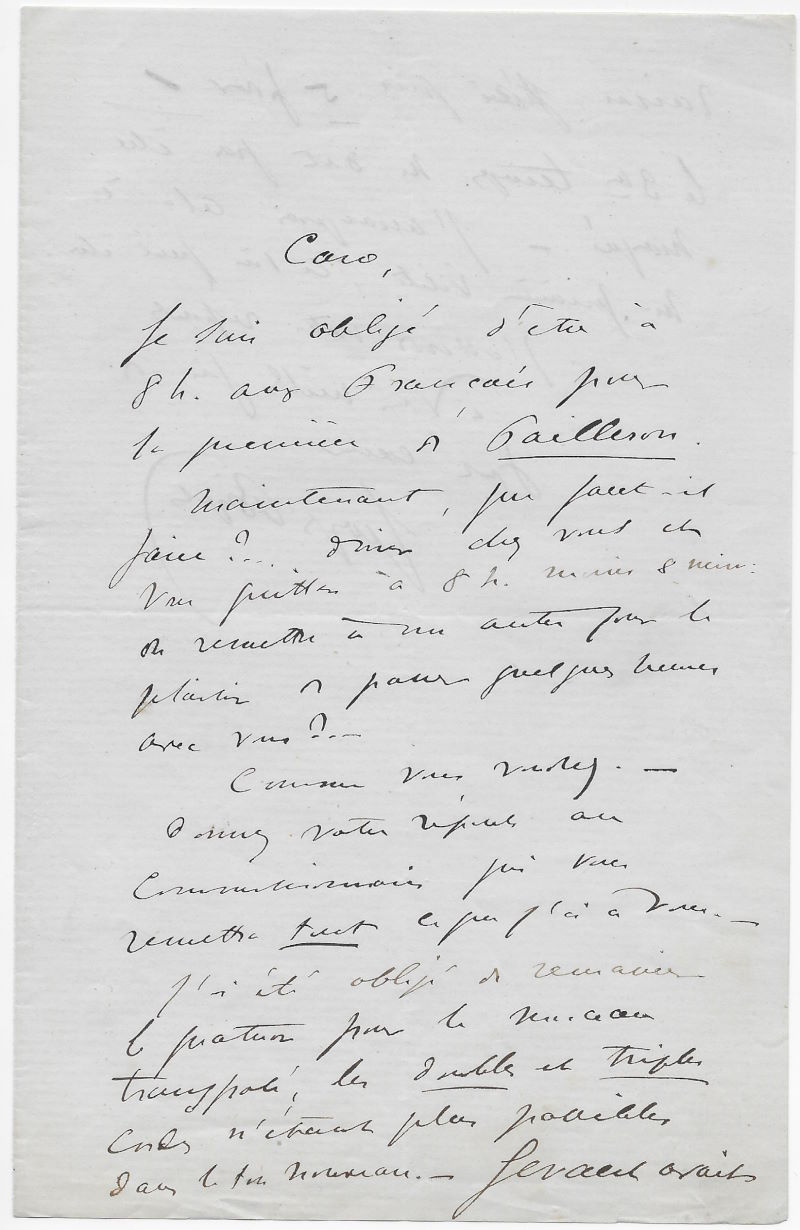 Caro,
Je suis obligé d'être à
8 h. aux Français pour
la première de Pailleron.
Maintenant, que faut-il
faire?... dîner chez vous et
vous quitter à 8 h. moins 8 min:
ou remettre à un autre jour le
plaisir de passer quelques heures
avec vous?..—
Comme vous voudrez. —
Donnez votre réponse au
commissionnaire qui vous
remettra tout ce que j'ai à vous. —
J'ai été obligé de remanier
le quatuor pour le morceau
transposé, les doubles et triples
cordes n'étant plus possibles
dans le ton nouveau. — Gevaert avait